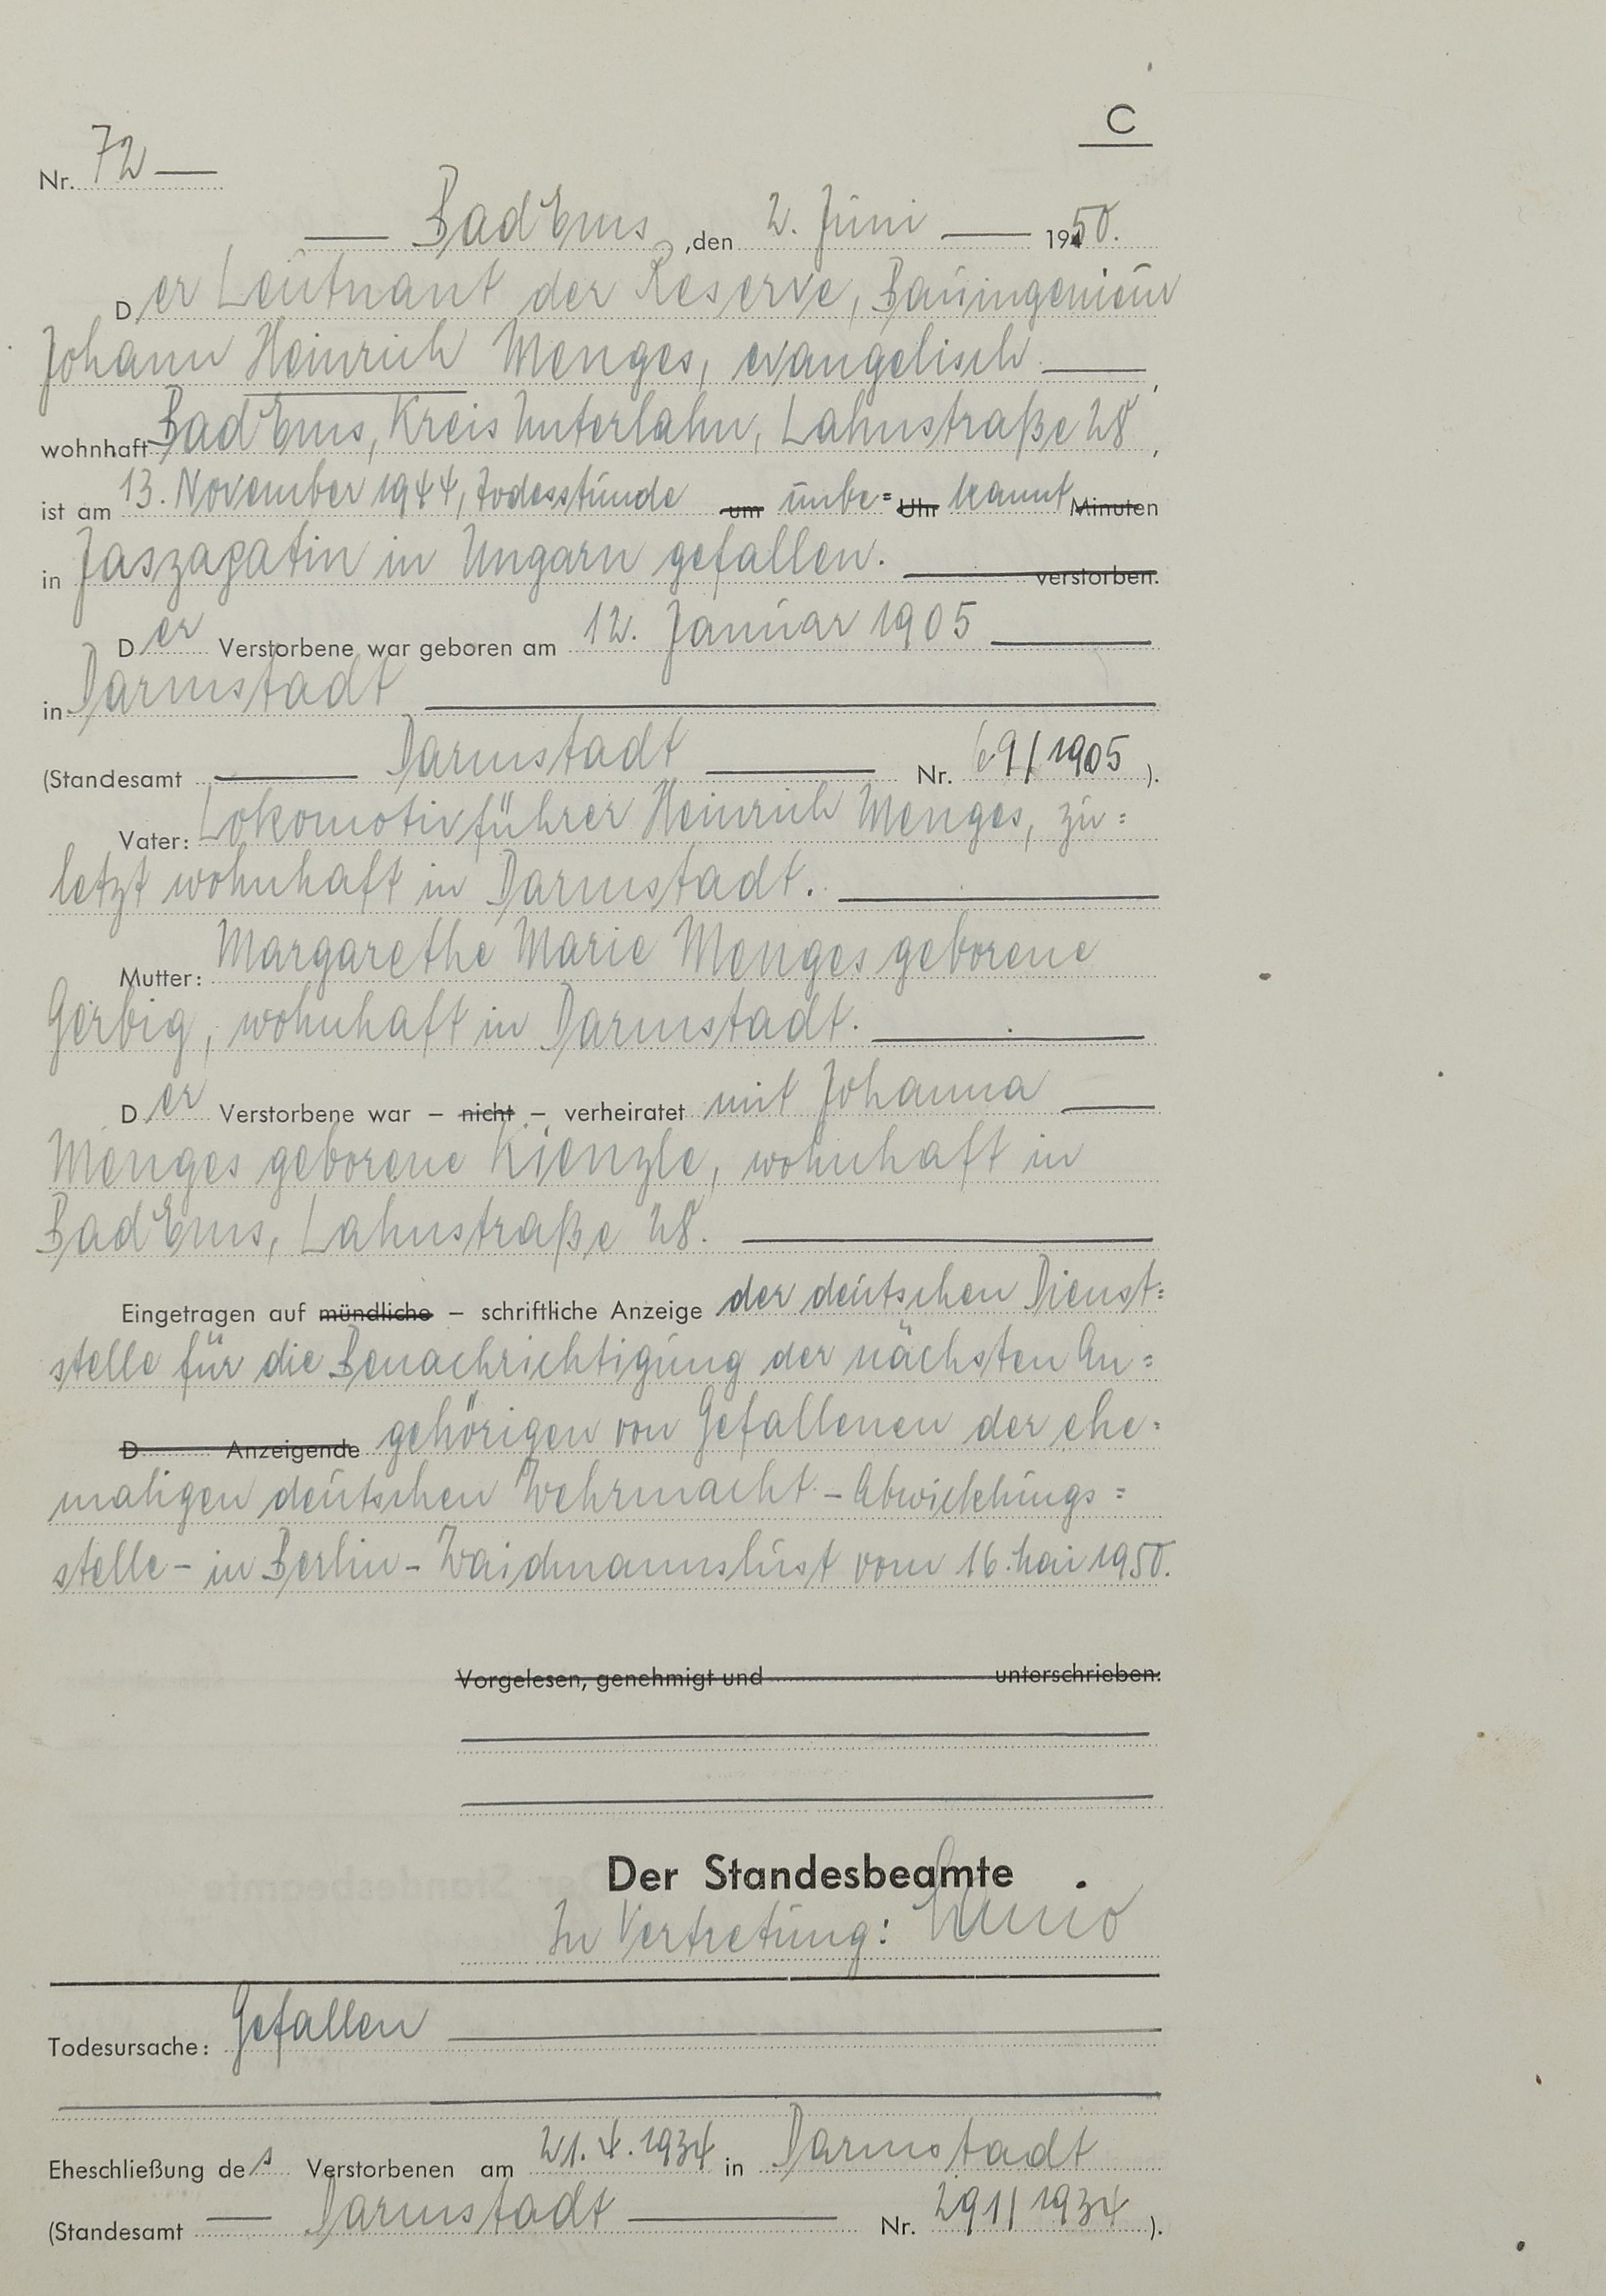 C
Nr. 72 —
— Bad Ems, den 2. Juni — 1950.
Der Leutnant der Reserve, Bauingenieur
Johann Heinrich Menges, evangelisch —,
wohnhaft Bad Ems, Kreis Unterlahn, Lahnstraße 28,
ist am 13. November 1944, Todesstunde um unbe= Uhr kannt Minuten
in Jaszagatin in Ungarn gefallen. — verstorben.
Der Verstorbene war geboren am 12. Januar 1905 —
in Darmstadt —
(Standesamt — Darmstadt — Nr. 69/1905 ).
Vater: Lokomotivführer Heinrich Menges, zu=
letzt wohnhaft in Darmstadt. —
Mutter: Margarethe Marie Menges geborene
Gerbig, wohnhaft in Darmstadt. —
Der Verstorbene war – nicht – verheiratet mit Johanna —
Menges geborene Kienzle, wohnhaft in
Bad Ems, Lahnstraße 28. —
Eingetragen auf mündliche – schriftliche Anzeige der deutschen Dienst=
stelle für die Benachrichtigung der nächsten An=
D Anzeigende gehörigen von Gefallenen der ehe=
maligen deutschen Wehrmacht – Abwicklungs=
stelle – in Berlin – Waidmannslust vom 16. Mai 1950.
Vorgelesen, genehmigt und unterschrieben:
Der Standesbeamte
In Vertretung:
Todesursache: Gefallen —
Eheschließung des Verstorbenen am 21.4.1934 in Darmstadt
(Standesamt — Darmstadt — Nr. 291/1934 ).